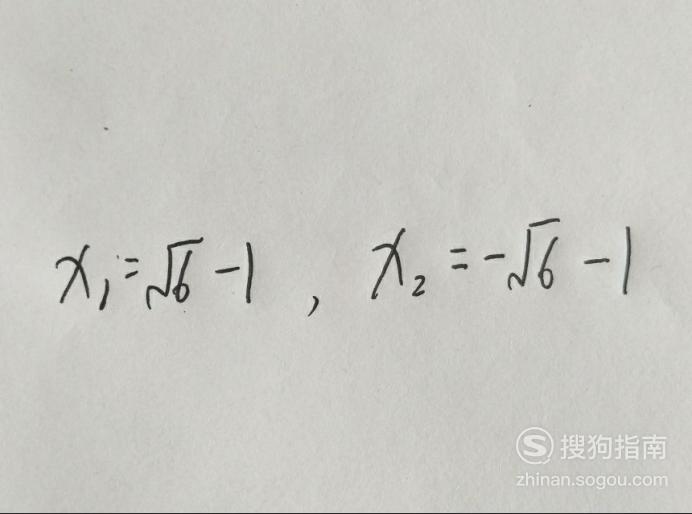 x₁=√6-1 , x₂=-√6-1
搜狗指南
zhinan.sogou.com